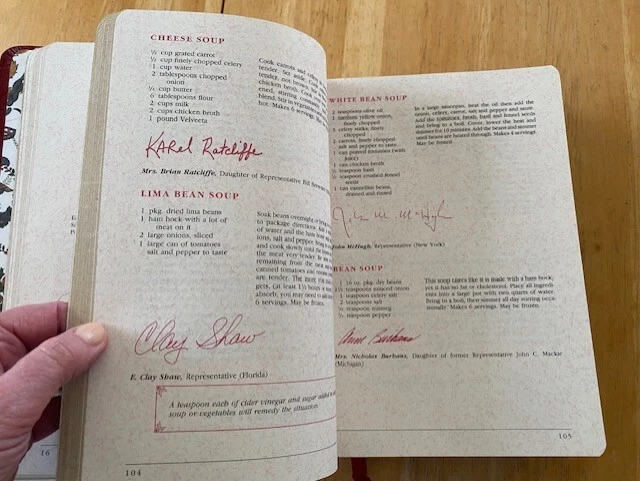 CHEESE SOUP
½ cup grated carrot
½ cup finely chopped celery
1 cup water
2 tablespoons chopped
onion
¼ cup butter
6 tablespoons flour
2 cups milk
2 cups chicken broth
1 pound Velveeta
Cook carrots and celery
tender. Set aside. Cook
tender, not brown.
chicken broth. Cook
ened, stirring constantly
blend. Stir in vegetables
hot. Makes 6 servings. May
Karel Ratcliffe
Mrs. Brian Ratcliffe, Daughter of Representative Bill
LIMA BEAN SOUP
1 pkg. dried lima beans
1 ham hock with a lot of
meat on it
2 large onions, sliced
1 large can of tomatoes
salt and pepper to taste
Soak beans overnight
to package directions.
of water and the ham
ions, salt and pepper.
and cook slowly until
the meat very tender.
remaining from the meat
canned tomatoes and
are tender. The more
gets, (at least 1½ hours
absorb, you may need to
6 servings. May be frozen.
Clay Shaw
E. Clay Shaw, Representative (Florida)
A teaspoon each of cider vinegar and sugar added to
soup or vegetables will remedy the situation
104
16
WHITE BEAN SOUP
2 teaspoons olive oil
1 medium yellow onion,
finely chopped
3 celery stalks, finely
chopped
2 carrots, finely chopped
salt and pepper to taste
1 can peeled tomatoes (with
juice)
1 can chicken broth
½ teaspoon basil
½ teaspoon crushed fennel
seeds
1 can cannelini beans,
drained and rinsed
In a large saucepan, heat the oil then add the
onion, celery, carrot, salt and pepper and saute.
Add the tomatoes, broth, basil and fennel seeds
and bring to a boil. Cover, lower the heat and
simmer for 10 minutes. Add the beans and simmer
until beans are heated through. Makes 4 servings.
May be frozen.
John M. McHugh
John McHugh, Representative (New York)
BEAN SOUP
1 16 oz. pkg. dry beans
teaspoons minced onion
1 teaspoon celery salt
2 teaspoons salt
teaspoon nutmeg
teaspoon pepper
This soup tastes like it is made with a ham hock,
yet it has no fat or cholesterol. Place all ingredi-
ents into a large pot with two quarts of water.
Bring to a boil, then simmer all day stirring occa-
sionally. Makes 6 servings. May be frozen.
Anne Burhans
Mrs. Nicholas Burhans, Daughter of former Representative John C. Mackie
(Michigan)
105